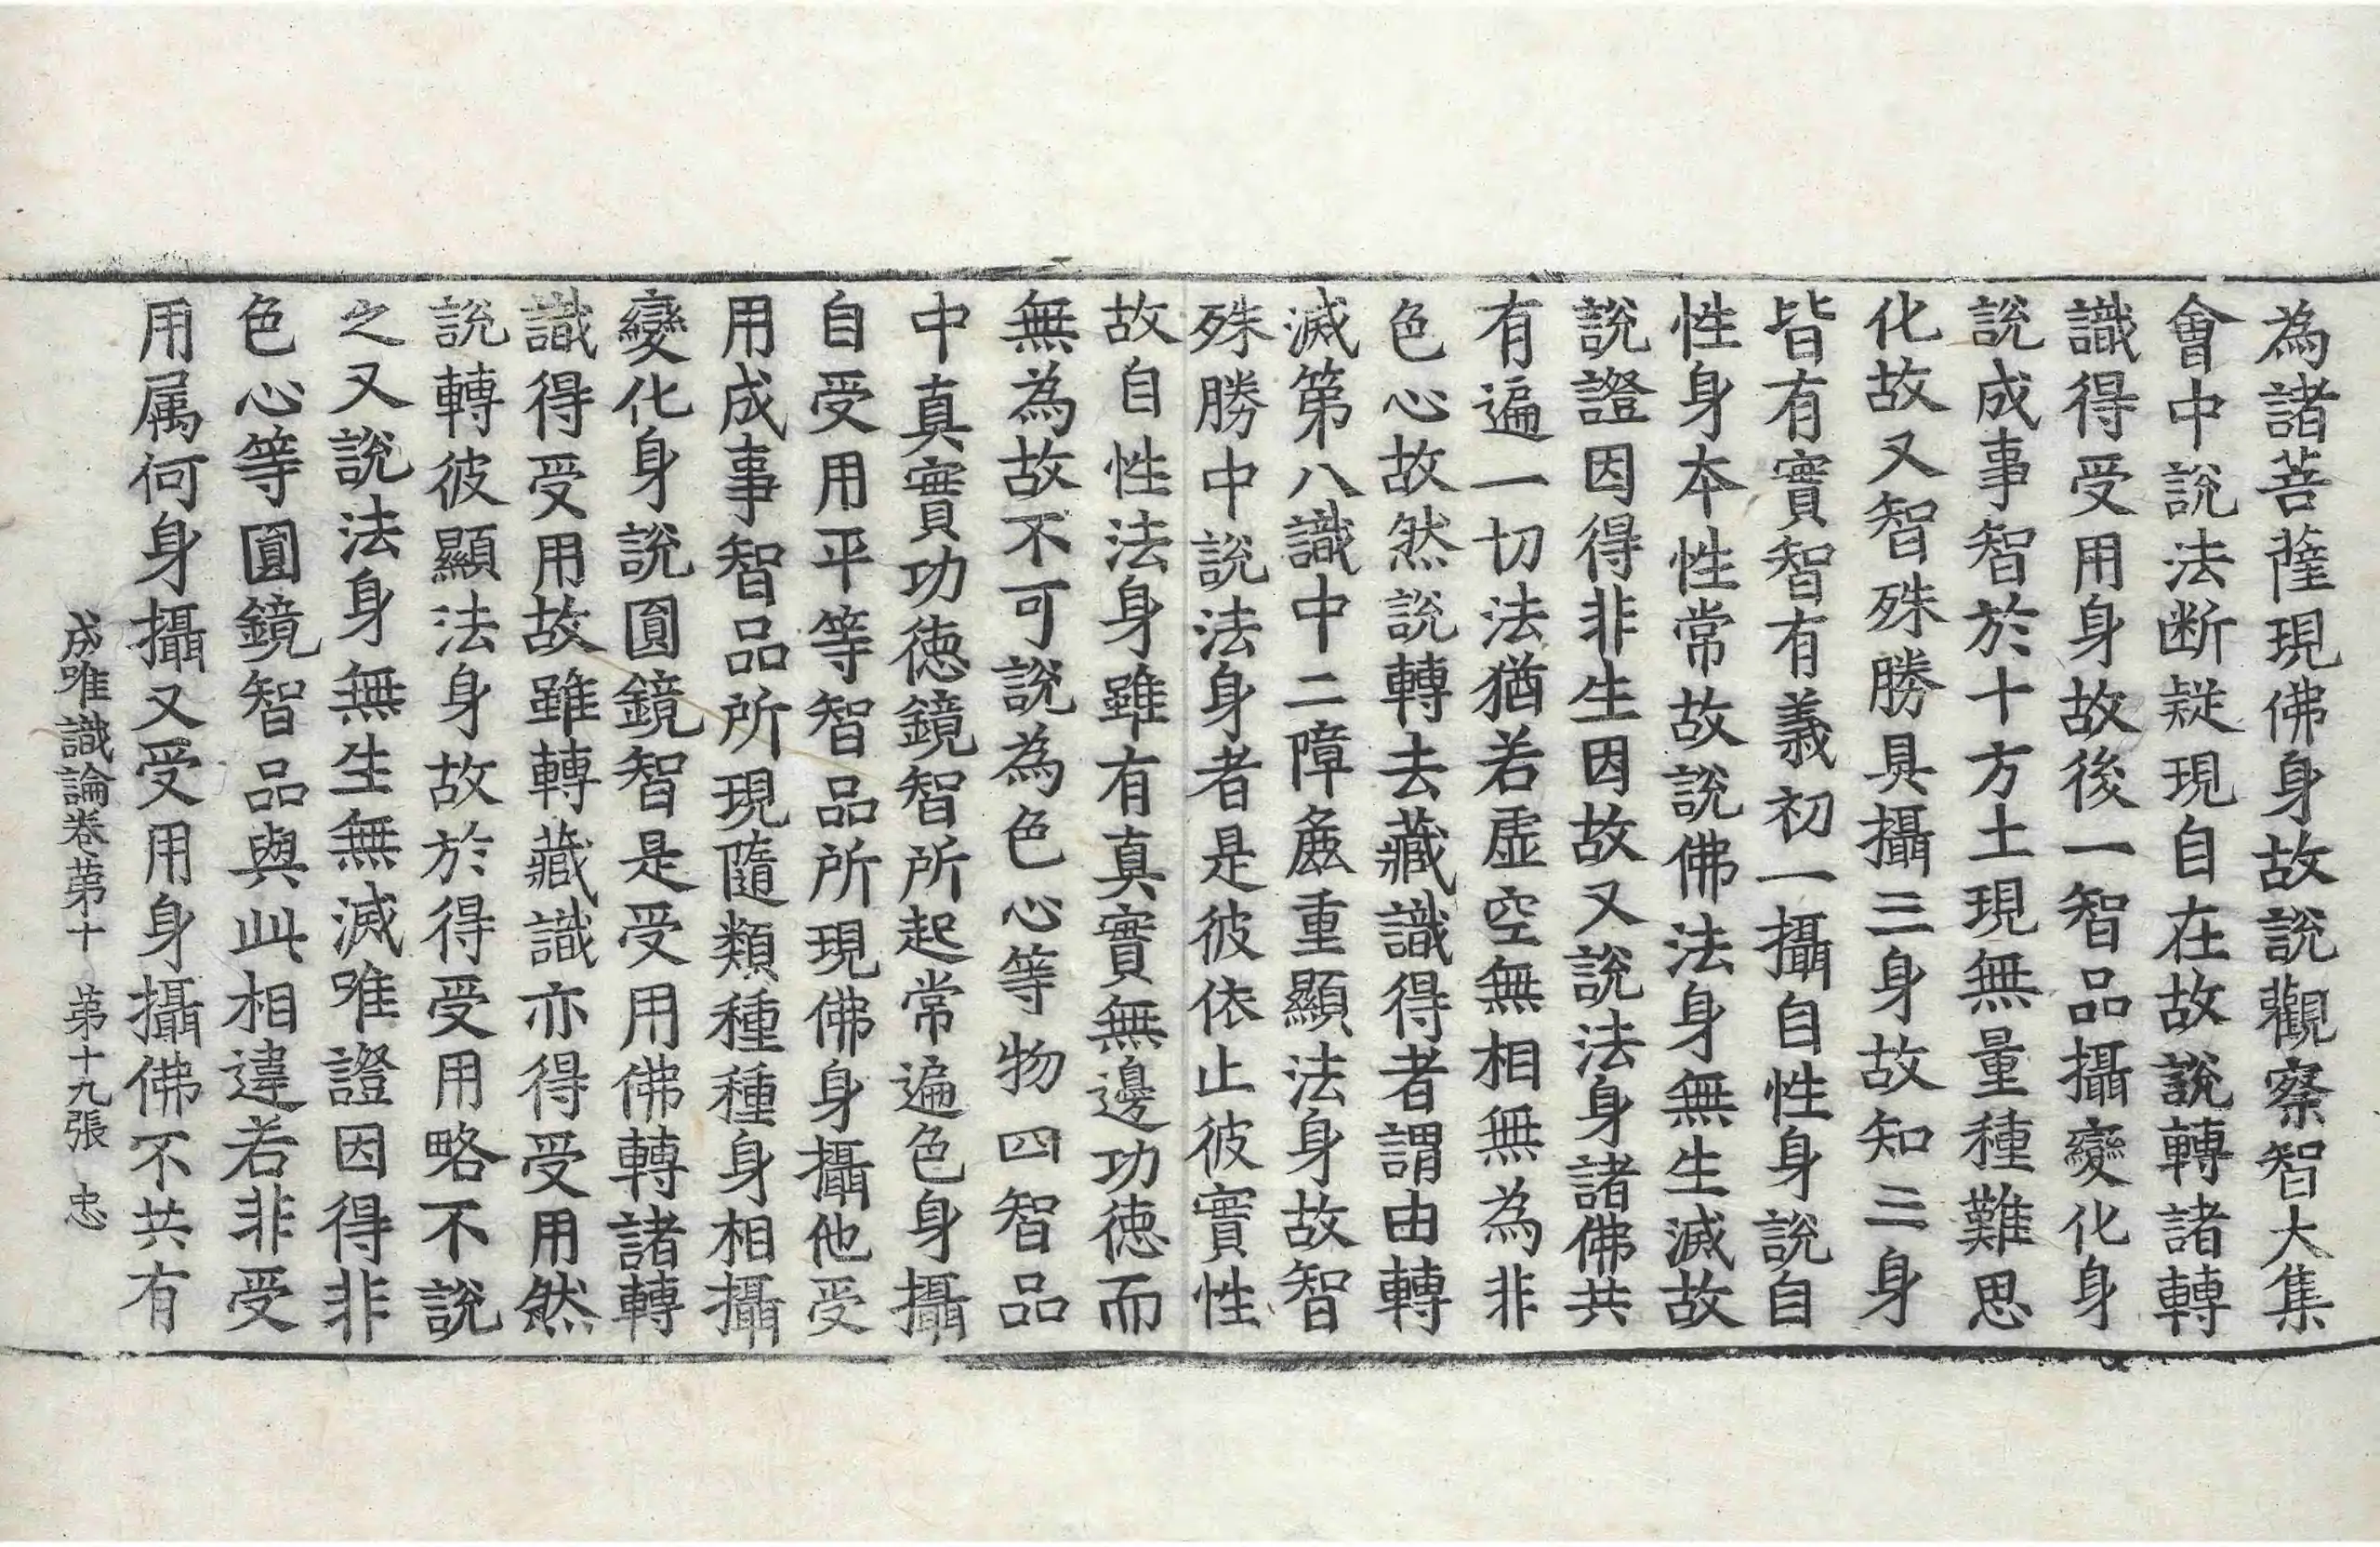 為諸菩薩現佛身故說觀察智大集
會中說法断疑現自在故說轉諸轉
識得受用身故後一智品攝變化身
說成事智於十方土現無量種難思
化故又智殊勝具攝三身故知三身
皆有實智有義初一攝自性身說自
性身本性常故說佛法身無生滅故
說證因得非生因故又說法身諸佛共
有遍一切法猶若虛空無相無為非
色心故然說轉去藏識得者謂由轉
滅第八識中二障麁重顯法身故智
殊勝中說法身者是彼依止彼實性
故自性法身雖有真實無邊功德而
無為故不可說為色心等物四智品
中真實功德鏡智所起常遍色身攝
自受用平等智品所現佛身攝他受
用成事智品所現隨類種種身相攝
變化身說圓鏡智是受用佛轉諸轉
識得受用故雖轉藏識亦得受用然
說轉彼顯法身故於得受用略不說
之又說法身無生無滅唯證因得非
色心等圓鏡智品與此相違若非受
用属何身攝又受用身攝佛不共有
成唯識論卷第十　第十九張　忠